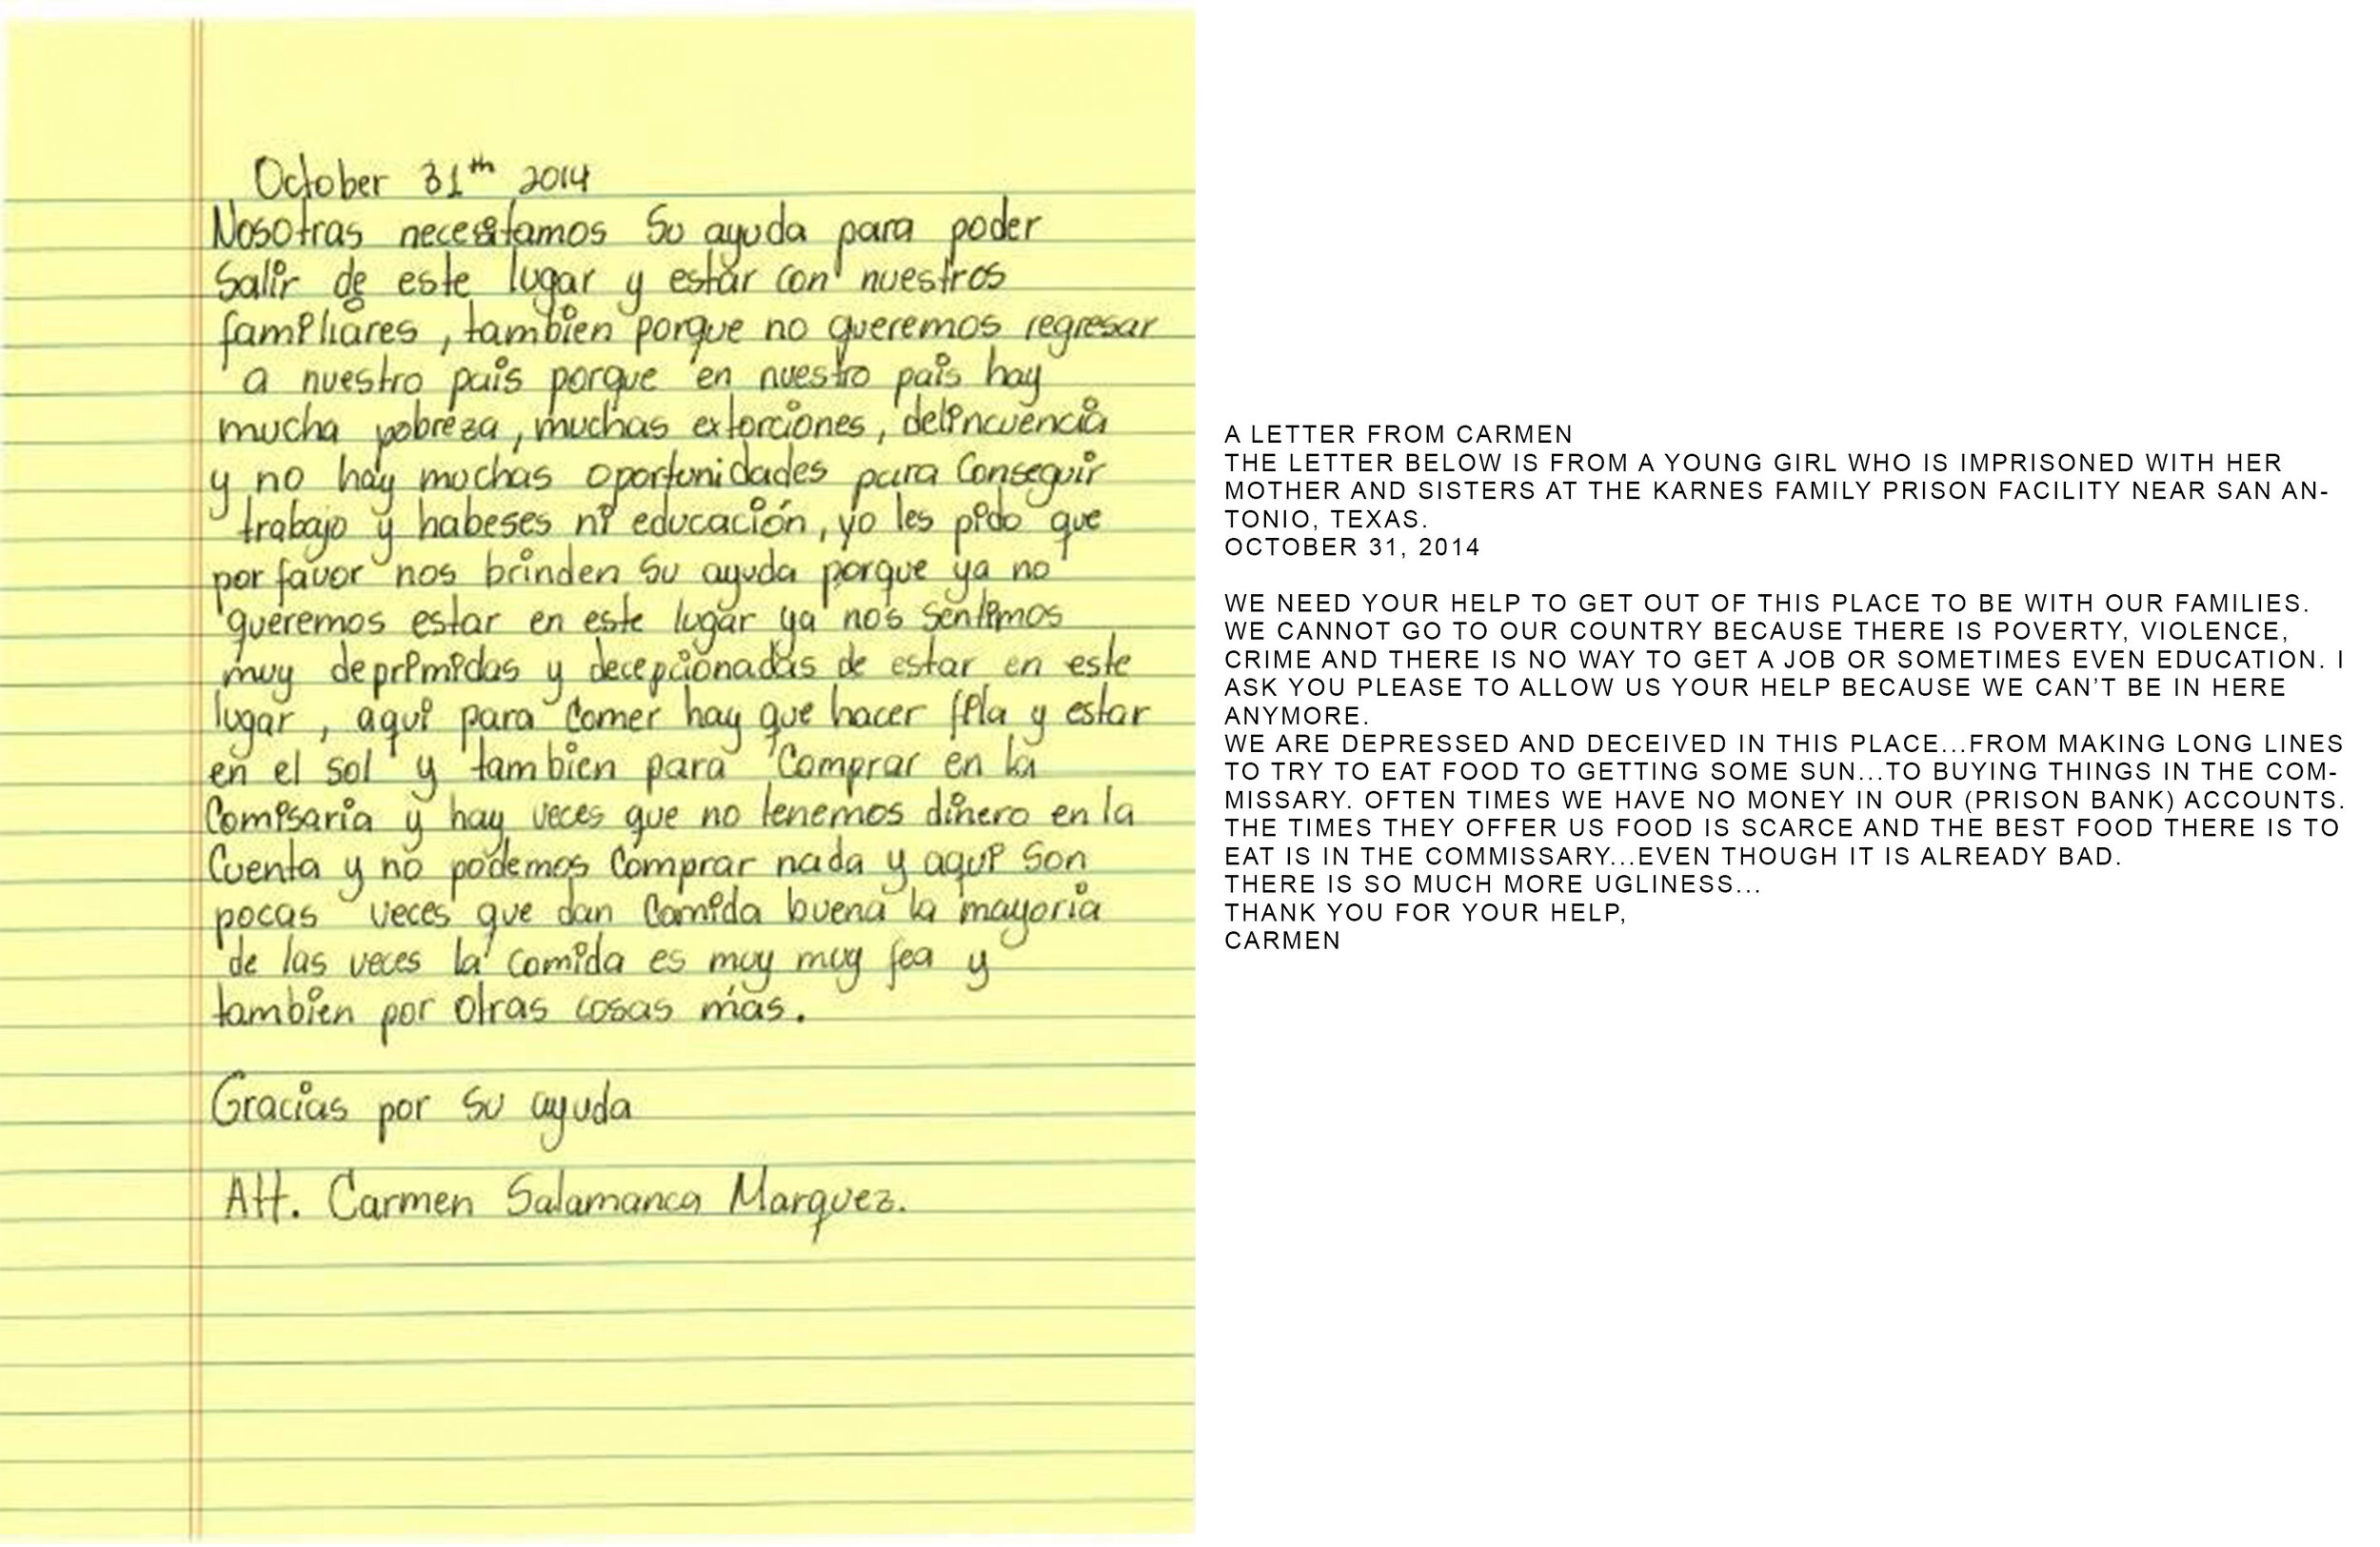 October 31th 2014
Nosotras necesitamos su ayuda para poder
salir de este lugar y estar con nuestros
familiares, tambien porque no queremos regresar
a nuestro pais porque en nuestro pais hay
mucha pobreza, muchas extorciones, delincuencia
y no hay muchas oportunidades para conseguir
trabajo y habeses ni educación, yo les pido que
por favor nos brinden su ayuda porque ya no
queremos estar en este lugar ya nos sentimos
muy deprimidas y decepcionadas de estar en este
lugar, aqui para comer hay que hacer fila y estar
en el sol y tambien para comprar en la
comisaria y hay veces que no tenemos dinero en la
cuenta y no podemos comprar nada y aqui son
pocas veces que dan comida buena la mayoria
de las veces la comida es muy muy fea y
tambien por otras cosas mas.
Gracias por su ayuda
Att. Carmen Salamanca Marquez.
A LETTER FROM CARMEN
THE LETTER BELOW IS FROM A YOUNG GIRL WHO IS IMPRISONED WITH HER
MOTHER AND SISTERS AT THE KARNES FAMILY PRISON FACILITY NEAR SAN AN-
TONIO, TEXAS.
OCTOBER 31, 2014
WE NEED YOUR HELP TO GET OUT OF THIS PLACE TO BE WITH OUR FAMILIES.
WE CANNOT GO TO OUR COUNTRY BECAUSE THERE IS POVERTY, VIOLENCE,
CRIME AND THERE IS NO WAY TO GET A JOB OR SOMETIMES EVEN EDUCATION. I
ASK YOU PLEASE TO ALLOW US YOUR HELP BECAUSE WE CAN'T BE IN HERE
ANYMORE.
WE ARE DEPRESSED AND DECEIVED IN THIS PLACE...FROM MAKING LONG LINES
TO TRY TO EAT FOOD TO GETTING SOME SUN...TO BUYING THINGS IN THE COM-
MISSARY. OFTEN TIMES WE HAVE NO MONEY IN OUR (PRISON BANK) ACCOUNTS.
THE TIMES THEY OFFER US FOOD IS SCARCE AND THE BEST FOOD THERE IS TO
EAT IS IN THE COMMISSARY...EVEN THOUGH IT IS ALREADY BAD.
THERE IS SO MUCH MORE UGLINESS...
THANK YOU FOR YOUR HELP,
CARMEN